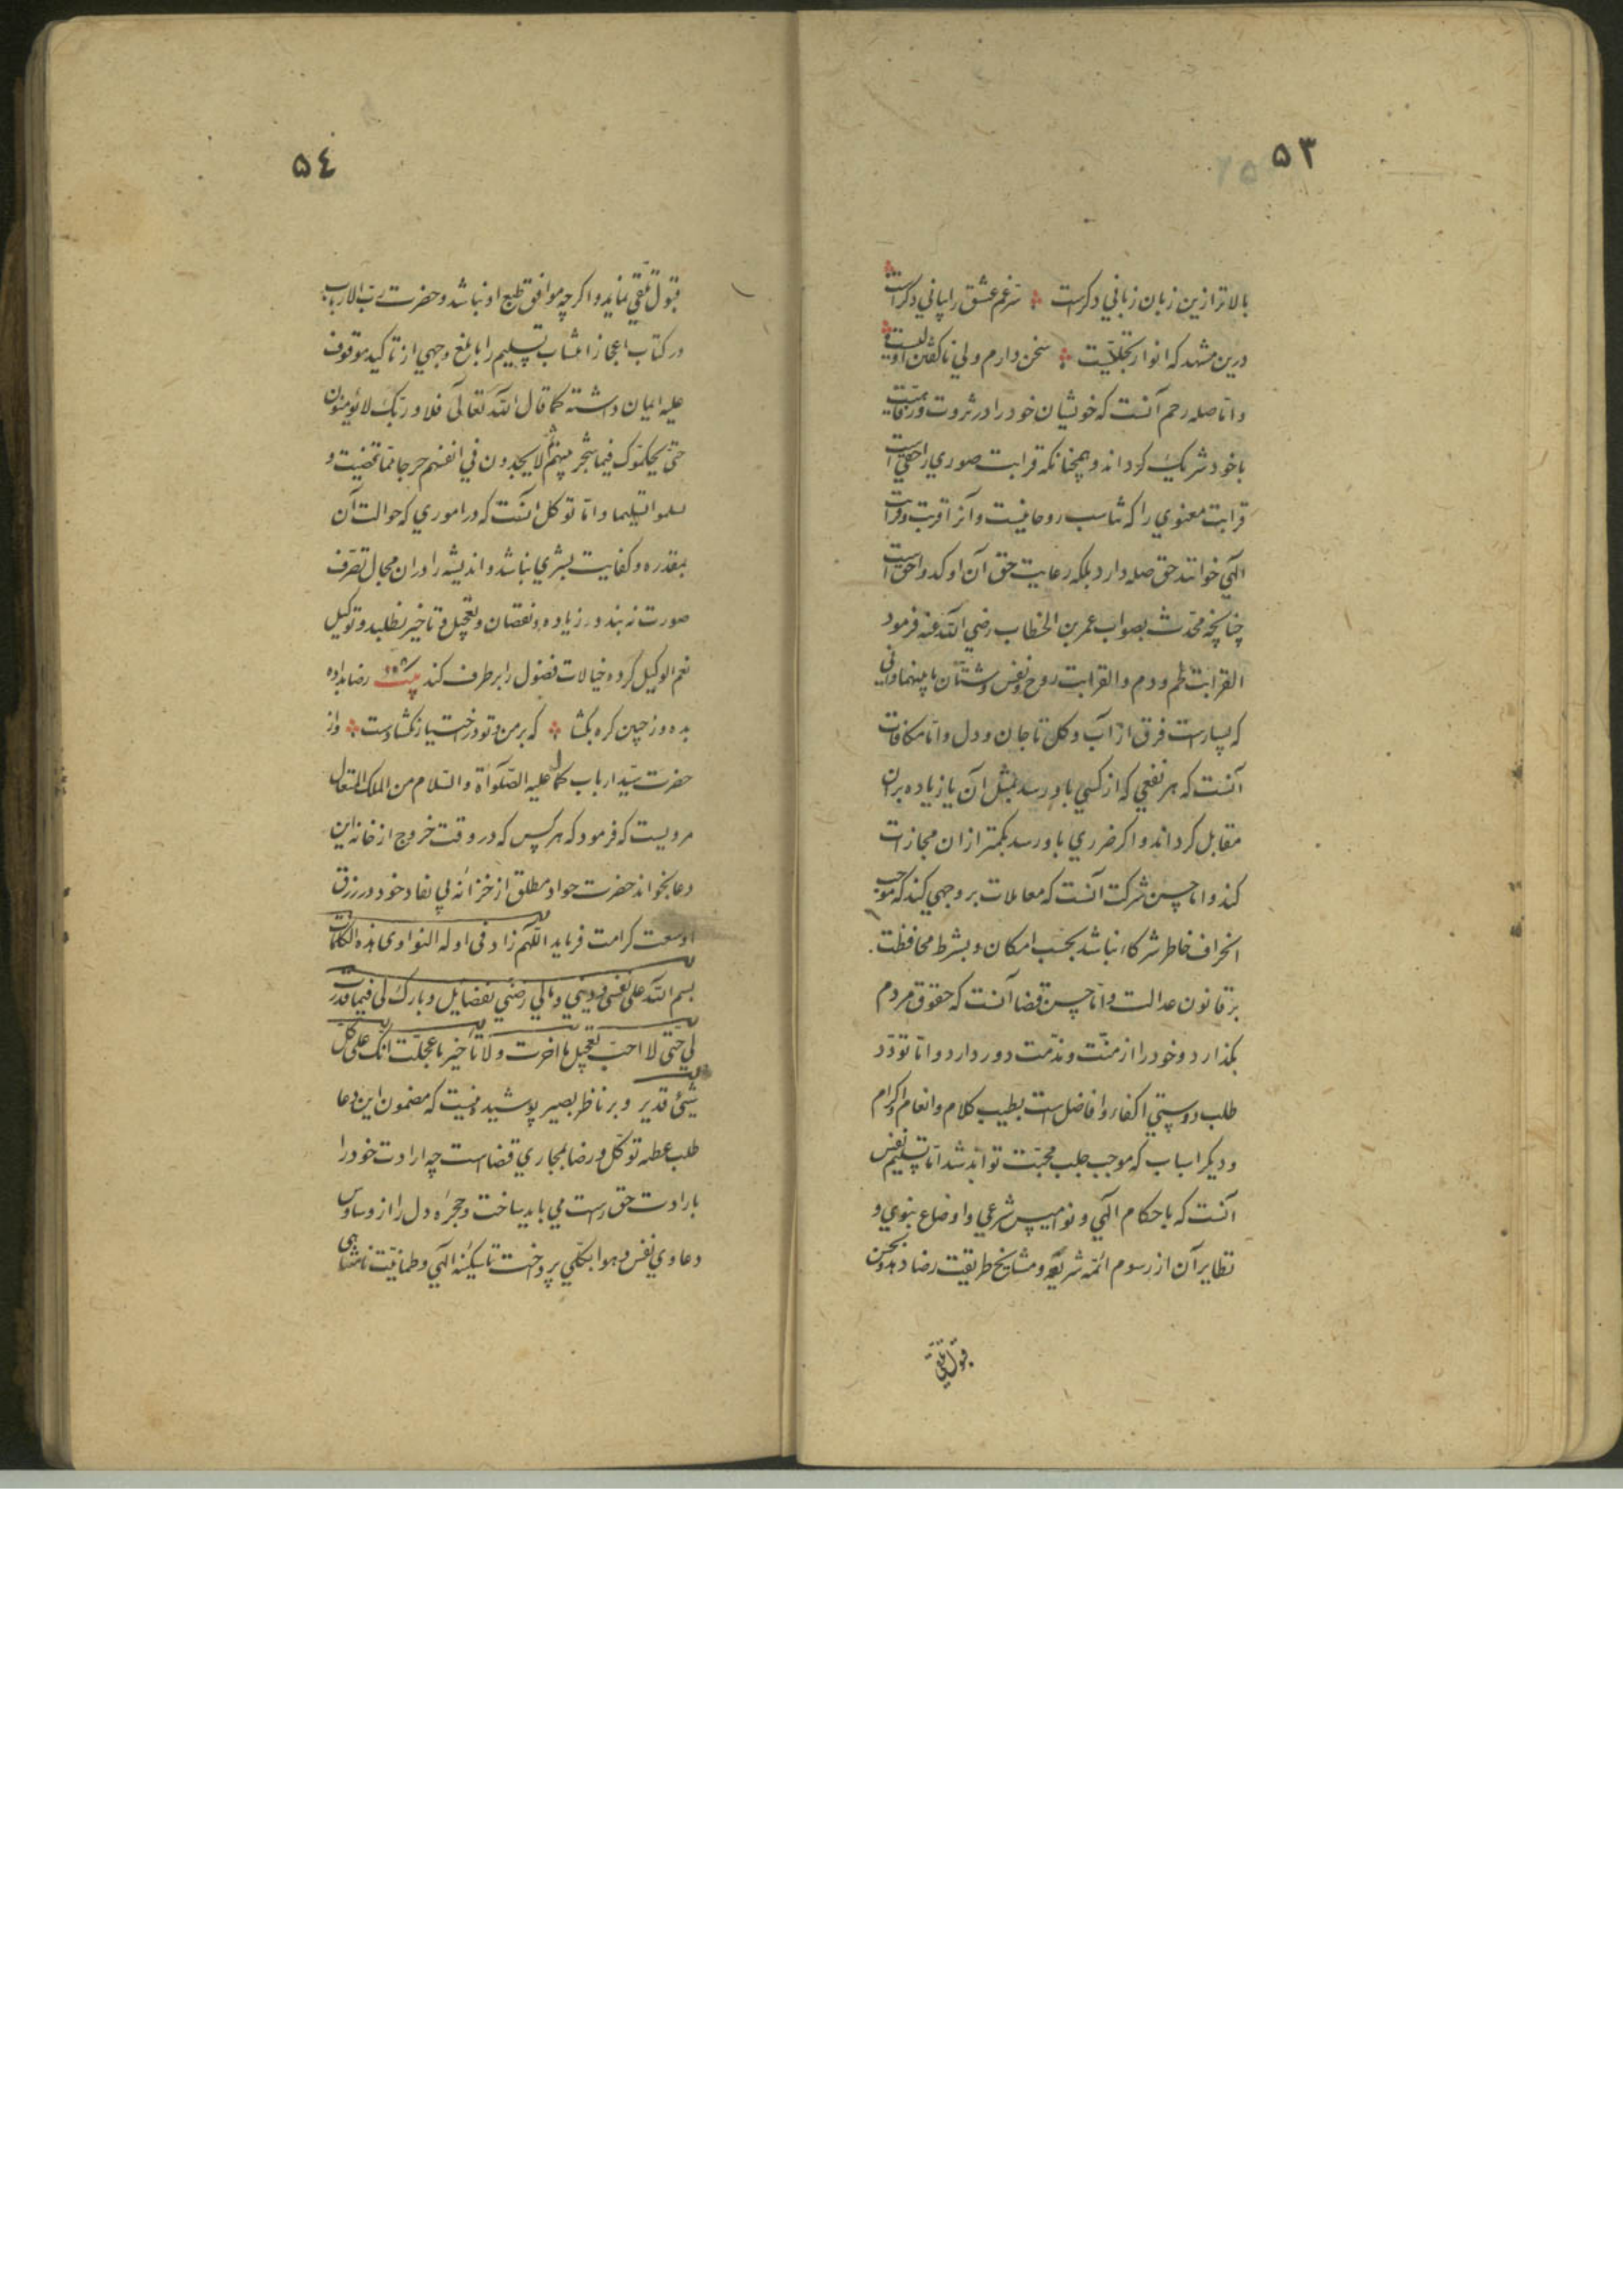 ۵۳
بالاتر ازین زبان زبانی دکرست سر غم عشق را بیانی دکراست
درین مشهد که انوار تجلیست سخن دارم ولی ناکفتن اولیست
و اما صله رحم آنست که خویشان خود را در ثروت و رفاهیت
با خود شریک کرداند و همچنانکه قرابت صوری را حقی است
قرابت معنوی را که تناسب روحانیست و آنرا قربت و قرابت
الهی خوانند حق صله دارد بلکه رعایت حق آن اوکد و احق است
چنانچه محدث بصواب عمر بن الخطاب رضی الله عنه فرمود
القرابت لحم و دم و القرابت روح و نفس و شتان ما بینهما
که بسیارست فرق از آب و کل تا جان و دل و اما مکافات
آنست که هر نفعی که از کسی باو رسد بمثل آن یا زیاده بران
مقابل کرداند و اکر ضرری باو رسد بکمتر از ان مجازات
کند و اما حسن شرکت آنست که معاملات بر وجهی کند که موجب
انحراف خاطر شرکاء نباشد بحسب امکان و بشرط محافظت
بر قانون عدالت و اما حسن قضا آنست که حقوق مردم
بکذارد و خود را از منت و ندمت دور دارد و اما تودد
طلب دوستی اکفاء و افاضل است بطیب کلام و انعام و اکرام
و دیکر اسباب که موجب جلب محبت تواند شد اما تسلیم نفس
آنست که باحکام الهی و نوامیس شرعی و اوضاع نبوی و
نظایر آن از رسوم ائمه شریعة و مشایخ طریقت رضا دهد و بحسن
قبول تلقی
۵٤
قبول تلقی نماید و اکرچه موافق طبع او نباشد و حضرت رب الارباب
در کتاب اعجاز انتساب تسلیم را بابلغ وجهی از تاکید موقوف
علیه ایمان داشته کما قال الله تعالی فلا و ربک لا یؤمنون
حتی یحکموک فیما شجر بینهم ثم لا یجدون فی انفسهم حرجا مما قضیت و
یسلموا تسلیما و اما توکل آنست که در اموری که حوالت آن
بمقدره و کفایت بشری نباشد و اندیشه را دران مجال تصرف
صورت نه بندد زیاده و نقصان و تعجیل و تاخیر نطلبد و توکیل
نعم الوکیل کرده خیالات فضول را بر طرف کند بیت رضا بداده
بده وز جبین کره بکشا که بر من و تو در اختیار نکشادست و از
حضرت سید ارباب کمال علیه الصلوة و السلام من الملک المتعال
مرویست که فرمود که هر کس که در وقت خروج از خانه این
دعا بخواند حضرت جواد مطلق از خزائنه بی نفاد خود در رزق
او سعت کرامت فرماید
بسم الله علی نفسی و دینی و مالی رضنی بقضایک و بارک لی فیما قدرت
لی حتی لا احب تعجیل ما اخرت و لا تاخیر ما عجلت انک علی کل
شیئ قدیر و بر ناظر بصیر پوشیده نیست که مضمون این دعا
طلب عطیه توکل و رضا بمجاری قضا است چه ارادت خود را
بارادت حق راست می باید ساخت و حجره دل را از وساوس
دعاوی نفس و هوا بکلی پرداخت تا سکینه الهی و طمانیت نامتناهی